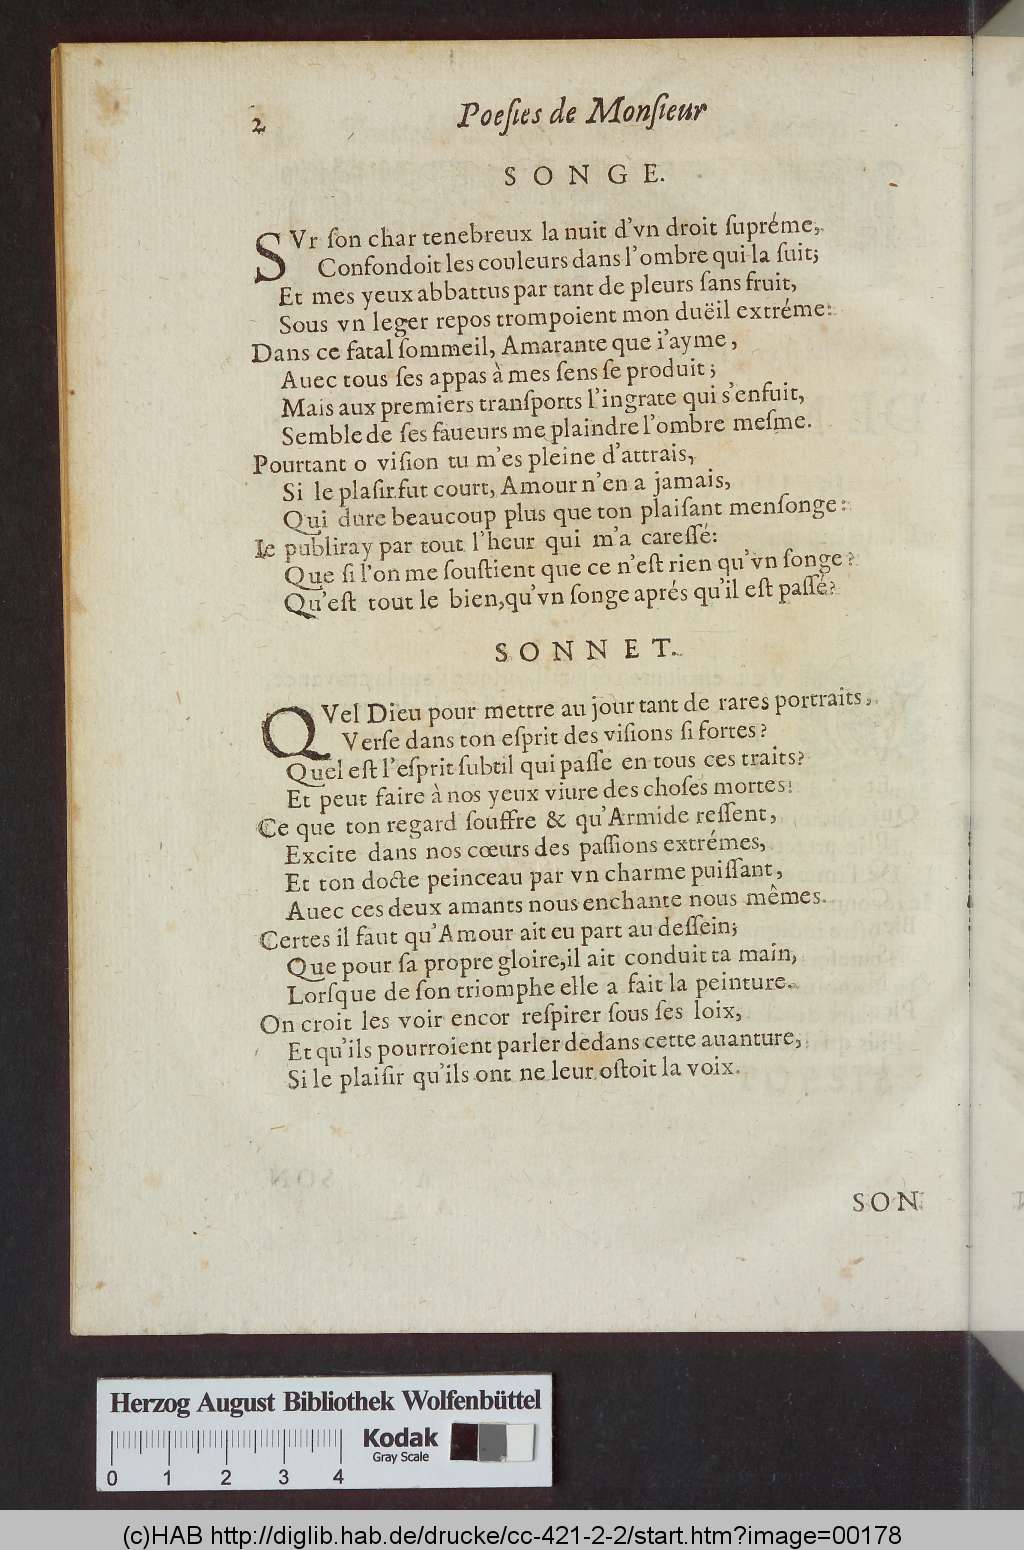 2
Poeſies de Monſieur
SONGE.
SVr ſon char tenebreux la nuit d'vn droit ſupréme,
Confondoit les couleurs dans l'ombre qui la ſuit;
Et mes yeux abbattus par tant de pleurs ſans fruit,
Sous vn leger repos trompoient mon duëil extréme:
Dans ce fatal ſommeil, Amarante que i'ayme,
Auec tous ſes appas à mes ſens ſe produit;
Mais aux premiers tranſports l'ingrate qui s'enfuit,
Semble de ſes faueurs me plaindre l'ombre meſme.
Pourtant o viſion tu m'es pleine d'attrais,
Si le plaſir fut court, Amour n'en a jamais,
Qui dure beaucoup plus que ton plaiſant menſonge:
Ie publiray par tout l'heur qui m'a careſſé:
Que ſi l'on me ſouſtient que ce n'eſt rien qu'vn ſonge?
Qu'eſt tout le bien,qu'vn ſonge aprés qu'il eſt paſſé?
SONNET.
QVel Dieu pour mettre au jour tant de rares portraits,
Verſe dans ton eſprit des viſions ſi fortes?
Quel eſt l'eſprit ſubtil qui paſſe en tous ces traits?
Et peut faire à nos yeux viure des choſes mortes!
Ce que ton regard ſouffre & qu'Armide reſſent,
Excite dans nos cœurs des paſſions extrémes,
Et ton docte peinceau par vn charme puiſſant,
Auec ces deux amants nous enchante nous mêmes.
Certes il faut qu'Amour ait eu part au deſſein;
Que pour ſa propre gloire,il ait conduit ta main,
Lorſque de ſon triomphe elle a fait la peinture.
On croit les voir encor reſpirer ſous ſes loix,
Et qu'ils pourroient parler dedans cette auanture,
Si le plaiſir qu'ils ont ne leur oſtoit la voix.
SON
Herzog August Bibliothek Wolfenbüttel
Kodak
Gray Scale
0 1 2 3 4
(c)HAB http://diglib.hab.de/drucke/cc-421-2-2/start.htm?image=00178